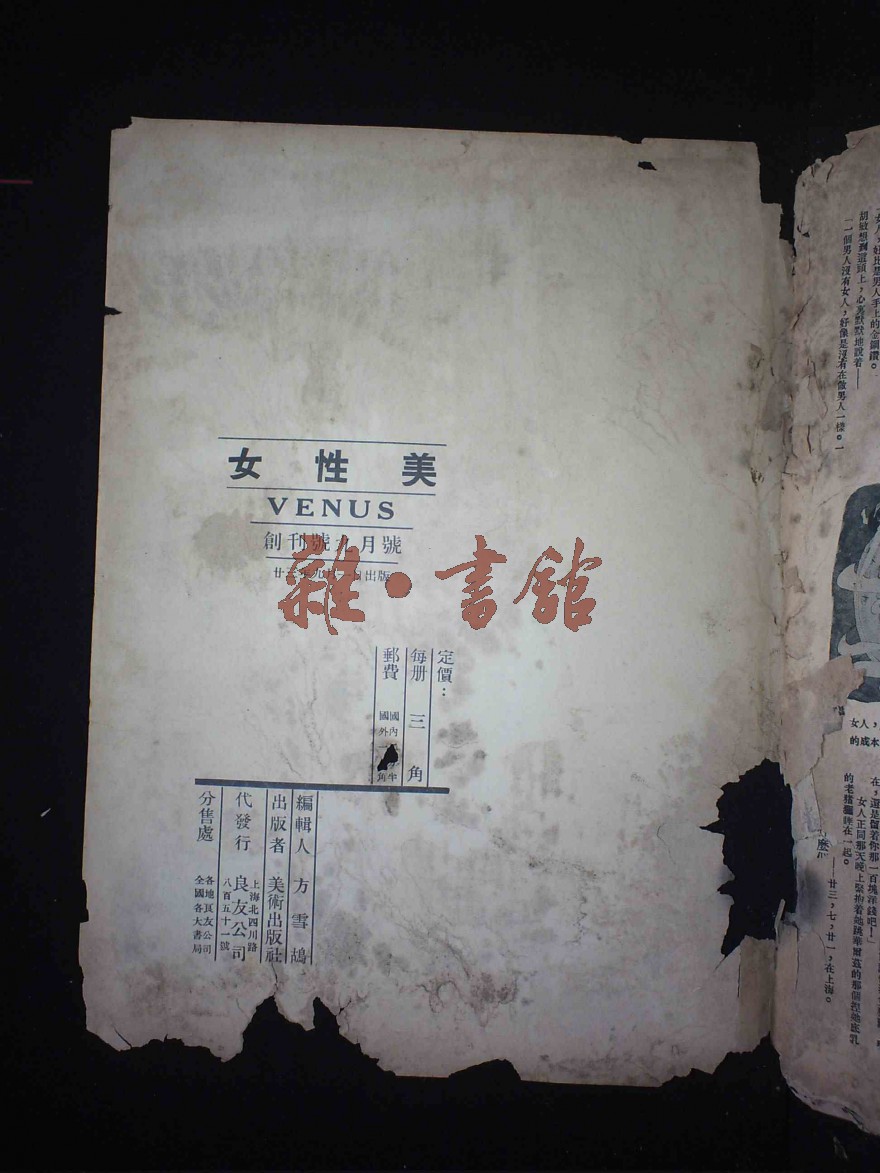 女性美
VENUS
創刊號九月號
廿三年九月一日出版
雜·書館
定價：
每册 三角
郵費 國內 國外
編輯人 方雪鴣
出版者 美術出版社
代發行 良友公司 上海北四川路八百五十一號
分售處 各地良友公司 全國各大書局
女人，好比是男人手上的金鋼鑽。
胡敏想到這頭上，心裏默默地說着——
「一個男人沒有女人，好像是沒有在做男人一樣。」
女人，
的成本
在，還是留着你那一百塊洋錢吧！」
女人正同那天晚上緊抱着她跳華爾茲的那個捏她底乳
的老豬玀睡在一起。
——廿三，七，廿一，在上海。